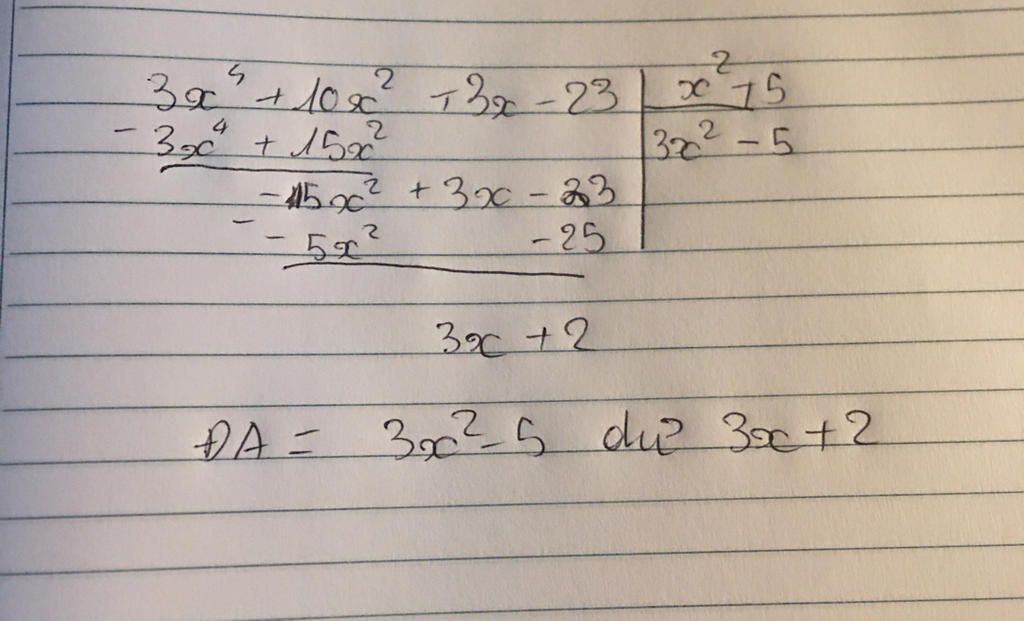 3x⁴ + 10x² + 3x - 23 | x² + 5
- 3x⁴ + 15x² | 3x² - 5
- 5x² + 3x - 23
- - 5x² - 25
3x + 2
ĐA = 3x² - 5 dư 3x + 2